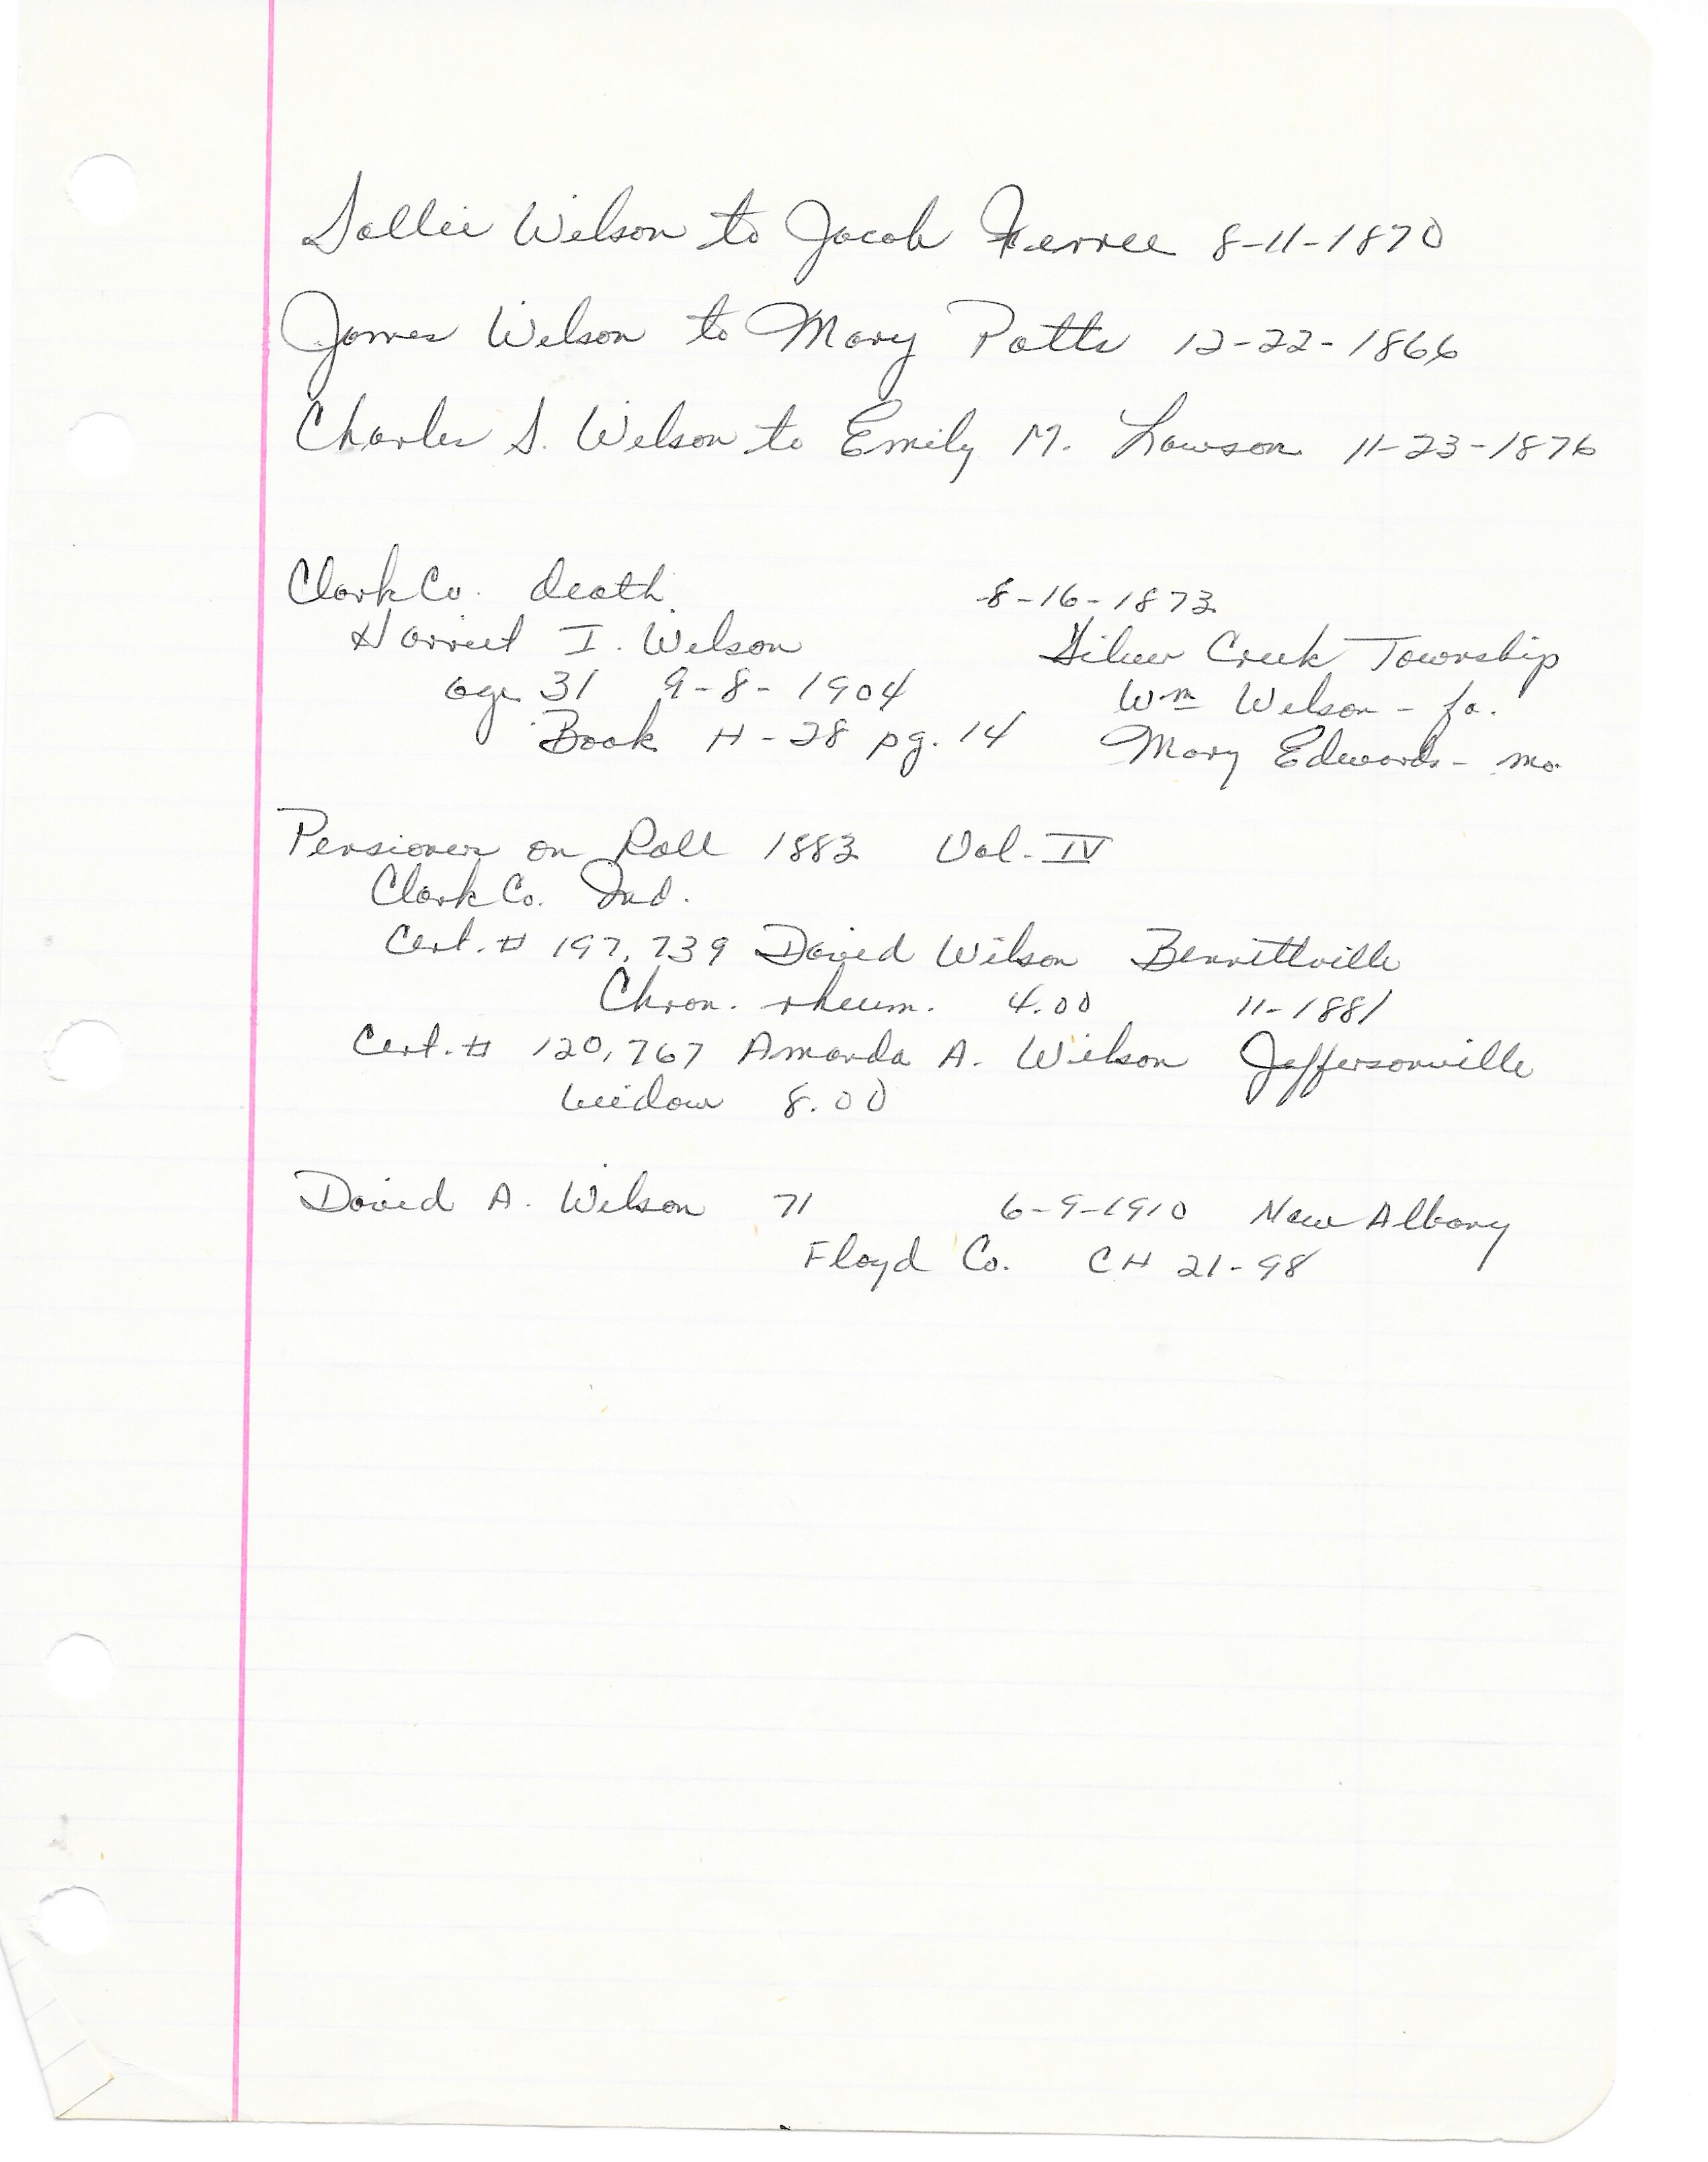 Sallie Wilson to Jacob Ferree 8-11-1870
James Wilson to Mary Potts 12-22-1866
Charles S. Wilson to Emily M. Lawson 11-23-1876
Clark Co. death 8-16-1873
Harriet I. Wilson Silver Creek Township
age 31 9-8-1904 Wm Wilson - fa.
Book H-28 pg. 14 Mary Edwards - mo.
Pensioner on Roll 1883 Vol. IV
Clark Co. Ind.
Cert. # 197,739 David Wilson Bennettville
Chron. rheum. 4.00 11-1881
Cert. # 120,767 Amanda A. Wilson Jeffersonville
widow 8.00
David A. Wilson 71 6-9-1910 New Albany
Floyd Co. CH 21-98